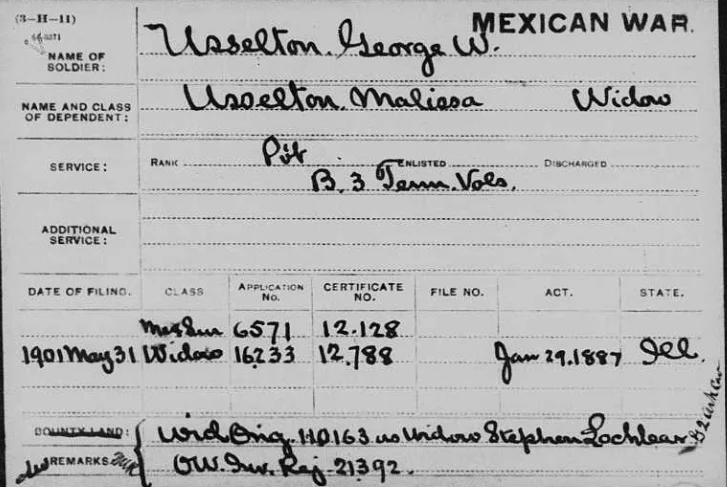 (3-H-11)
MEXICAN WAR.
NAME OF SOLDIER: Usselton, George W.
NAME AND CLASS OF DEPENDENT: Usselton, Malissa Widow
SERVICE: RANK Pvt ENLISTED DISCHARGED
B. 3 Tenn. Vols.
ADDITIONAL SERVICE:
DATE OF FILING. CLASS APPLICATION No. CERTIFICATE NO. FILE NO. ACT. STATE.
Mex Sur 6571 12.128
1901 May 31 Widow 16233 12.788 Jan 29.1887 Ill.
BOUNTY LAND: Wid. Orig. 110163 as Widow Stephen Lochlear
REMARKS: OW. Inv. Rej. 21392.